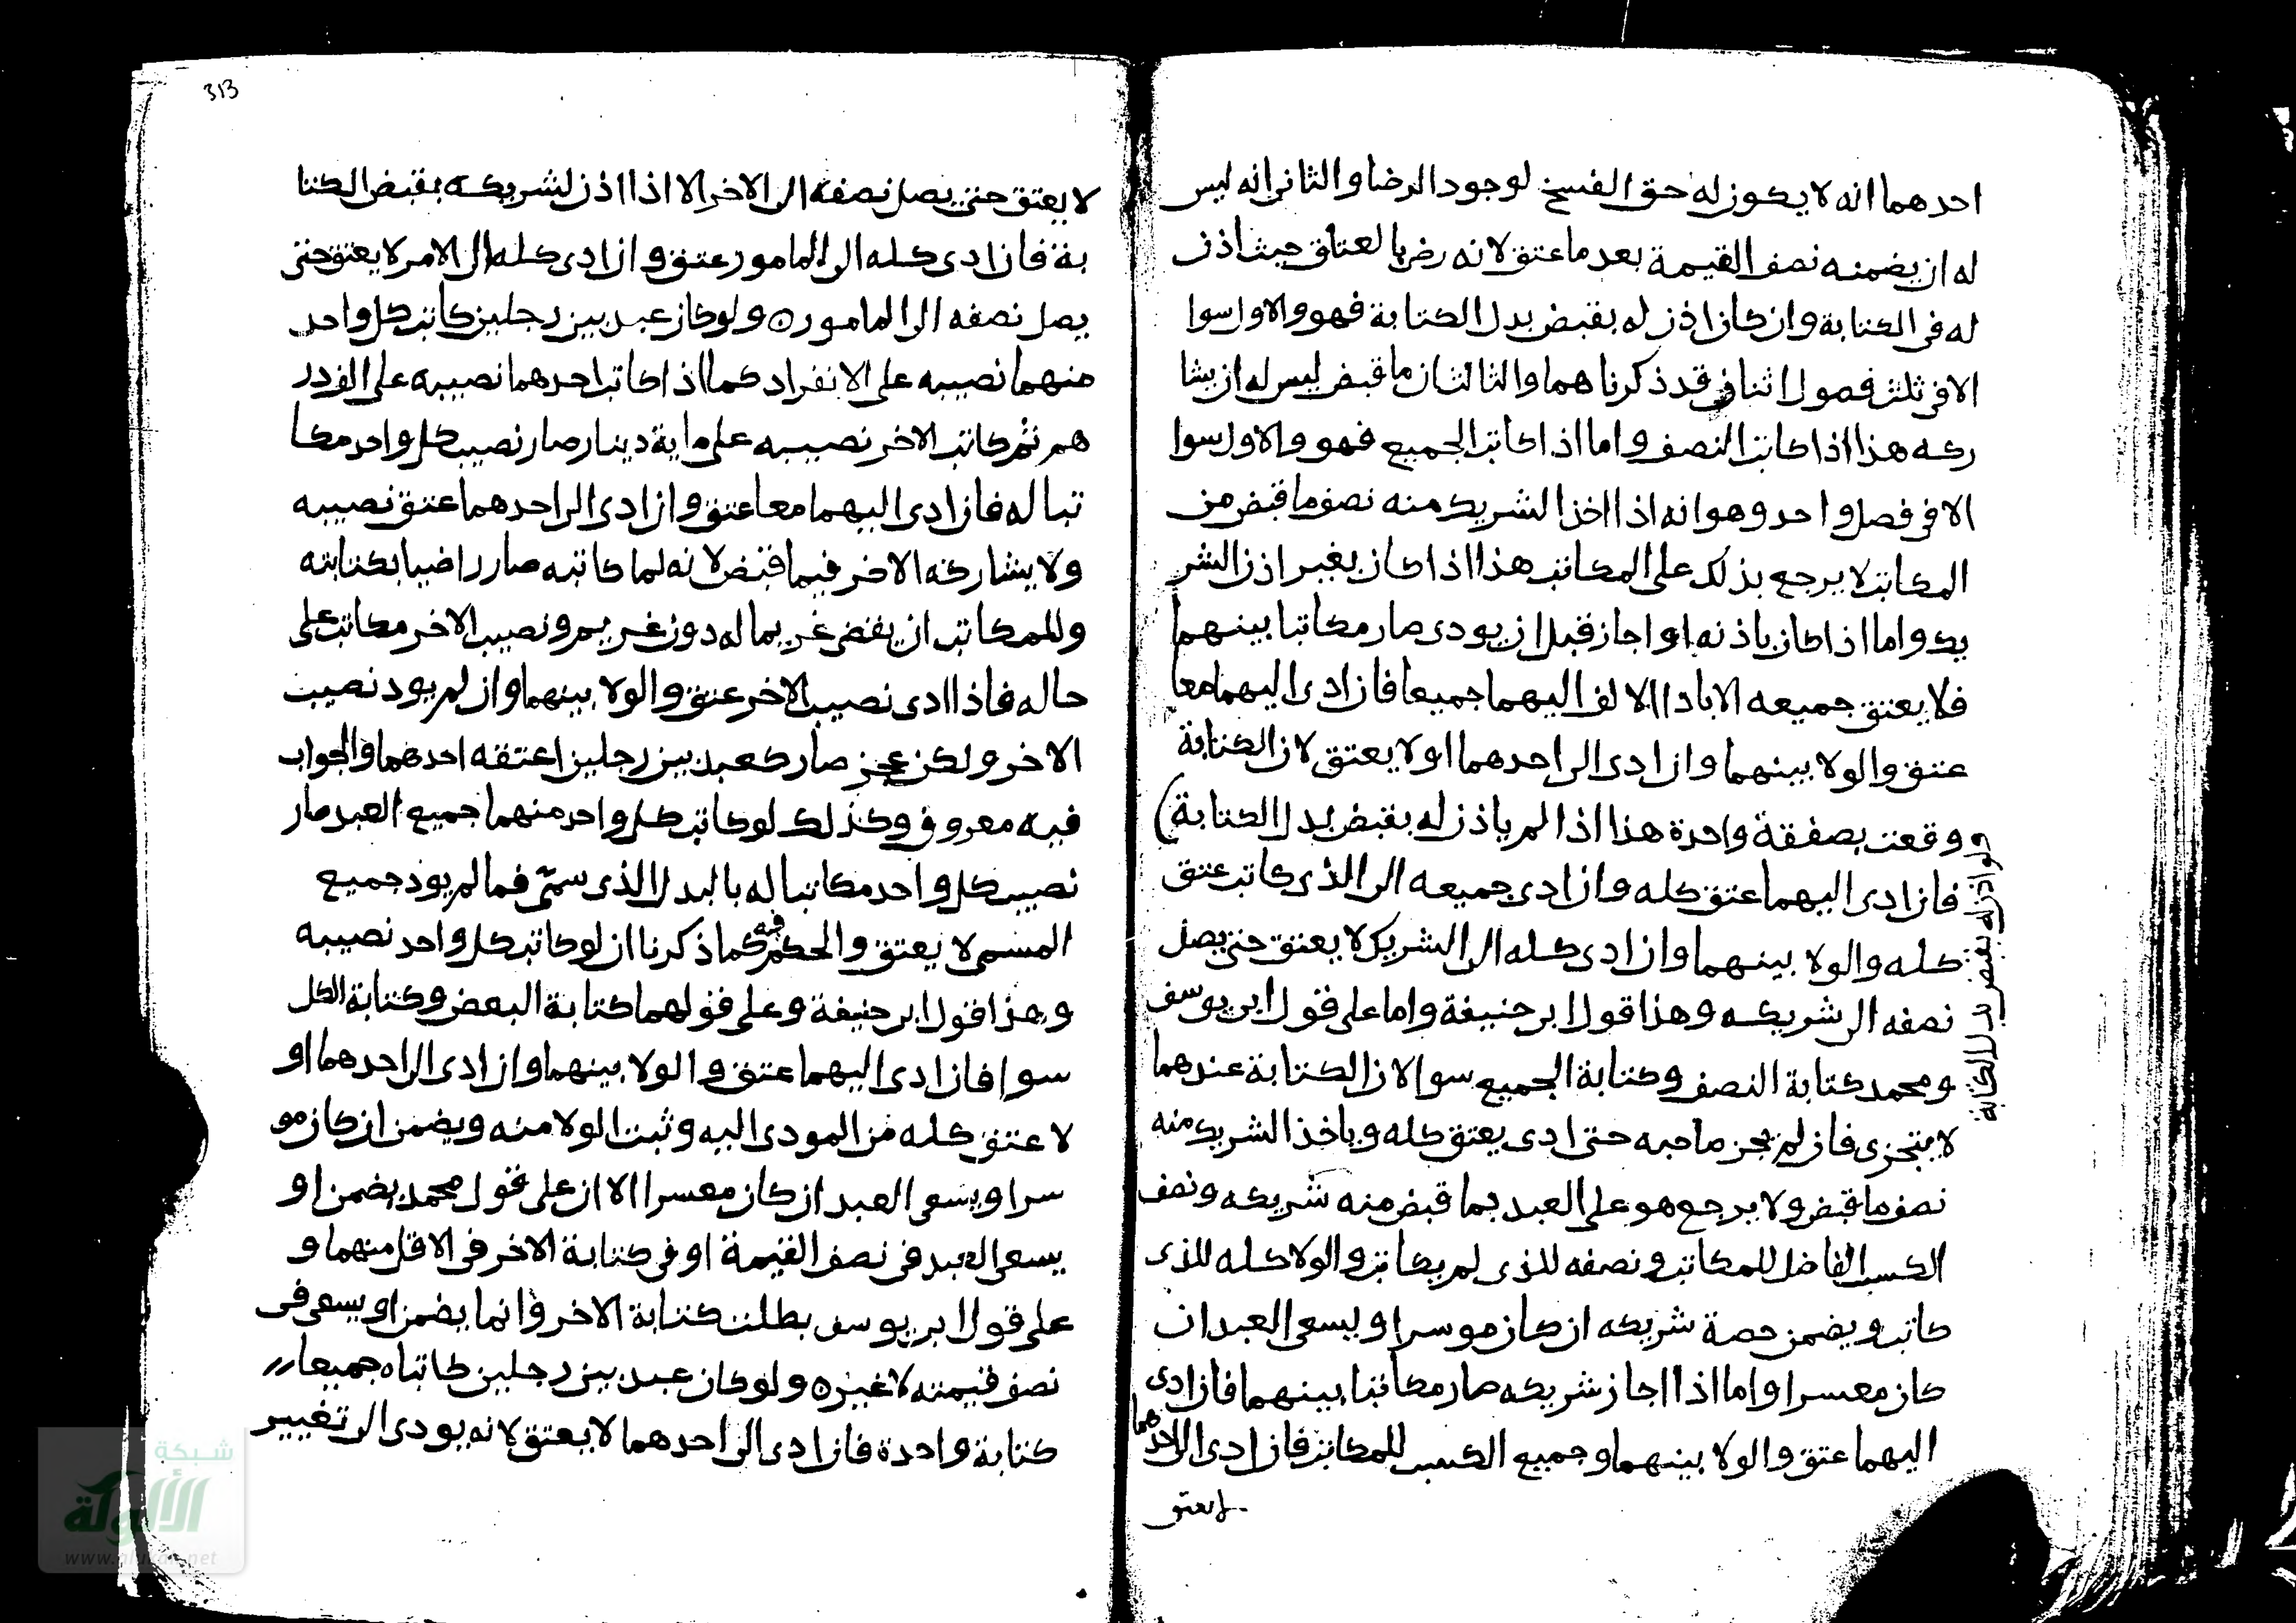 احدهما انه لا يكون له حق الفسخ لوجود الرضا والثانى انه ليس
له ان يضمنه نصف القيمة بعد ما عتق لانه رضى بالعتاق حيث اذن
له فى الكتابة وان كان اذن له بقبض بدل الكتابة فهو والاول سوا
الا فى ثلث فصول اثنان قد ذكرناهما والثالث ان ما قبض ليس له ان يشا
ركه هذا اذا كاتب النصف واما اذا كاتب الجميع فهو والاول سوا
الا فى فصل واحد وهو انه اذا اخذ الشريك منه نصف ما قبض من
المكاتب لا يرجع بذلك على المكاتب هذا اذا كان بغير اذن الشر
يك واما اذا كان باذنه او اجاز قبل ان يودى صار مكاتبا بينهما
فلا يعتق جميعه الا بادا الالف اليهما جميعا فان ادى اليهما معا
عتق والولا بينهما وان ادى الى احدهما اولا يعتق لان الكتابة
وقعت بصفقة واحدة هذا اذا لم ياذن له بقبض بدل الكتابة
ولو اذن له بقبض بدل الكتابة
فان ادى اليهما عتق كله وان ادى جميعه الى الذى كاتب عتق
كله والولا بينهما وان ادى كله الى الشريك لا يعتق حتى يصل
نصفه الى شريكه وهذا قول ابى حنيفة واما على قول ابى يوسف
ومحمد كتابة النصف وكتابة الجميع سوا لان الكتابة عندهما
لا يتجزى فان لم يجز صاحبه حتى ادى يعتق كله وياخذ الشريك منه
نصف ما قبض ولا يرجع هو على العبد بما قبض منه شريكه ونصف
الكسب الفاضل للمكاتب ونصفه للذى لم يكاتب والولا كله للذى
كاتب ويضمن حصة شريكه ان كان موسرا ويسعى العبد ان
كان معسرا واما اذا اجاز شريكه صار مكاتبا بينهما فان ادى
اليهما عتق والولا بينهما وجميع الكسب للمكاتب فان ادى الى احدهما
لا يعتق
313
لا يعتق حتى يصل نصفه الى الاخر الا اذا اذن لشريكه بقبض الكتا
بة فان ادى كله الى المامور عتق وان ادى كله الى الامر لا يعتق حتى
يصل نصفه الى المامور ه ولو كان عبد بين رجلين كاتب كل واحد
منهما نصيبه على الانفراد كما اذا كاتب احدهما نصيبه على الف در
هم ثم كاتب الاخر نصيبه على ماية دينار صار نصيب كل واحد مكا
تبا له فان ادى اليهما معا عتق وان ادى الى احدهما عتق نصيبه
ولا يشاركه الاخر فيما قبض لانه لما كاتبه صار راضيا بكتابته
وللمكاتب ان يقضى غريما له دون غريم ونصيب الاخر مكاتب على
حاله فاذا ادى نصيب الاخر عتق والولا بينهما وان لم يود نصيب
الاخر ولكن عجز صار كعبد بين رجلين اعتقه احدهما والجواب
فيه معروف وكذلك لو كاتب كل واحد منهما جميع العبد صار
نصيب كل واحد مكاتبا له بالبدل الذى سمى فما لم يود جميع
المسمى لا يعتق والحكم فيه كما ذكرنا ان لو كاتب كل واحد نصيبه
وهذا قول ابى حنيفة وعلى قولهما كتابة البعض وكتابة الكل
سوا فان ادى اليهما عتق والولا بينهما وان ادى الى احدهما او
لا عتق كله من المودى اليه وثبت الولا منه ويضمن ان كان مو
سرا ويسعى العبد ان كان معسرا الا ان على قول محمد يضمن او
يسعى العبد فى نصف القيمة او فى كتابة الاخر فى الاقل منهما و
على قول ابى يوسف بطلت كتابة الاخر وانما يضمن او يسعى فى
نصف قيمته لا غير ه ولو كان عبد بين رجلين كاتباه جميعا
كتابة واحدة فان ادى الى احدهما لا يعتق لانه يودى الى تغيير
شبكة
الألوكة
www.alukah.net